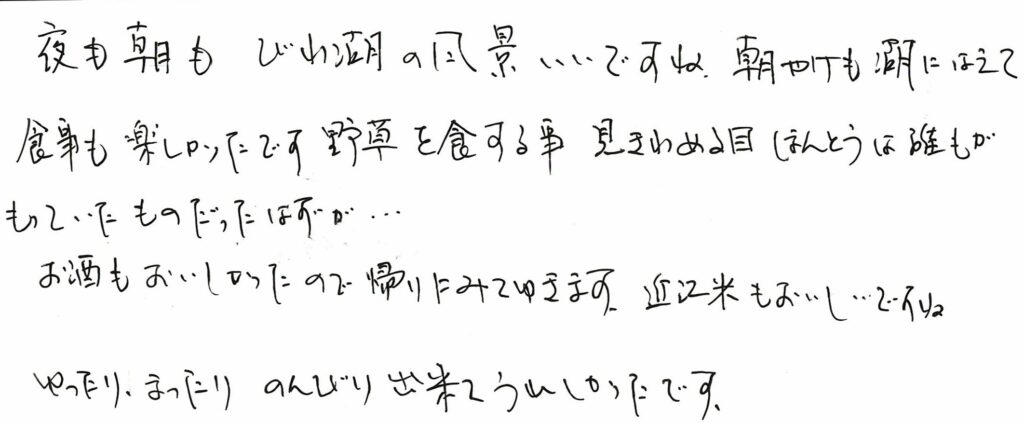 夜も朝も びわ湖の風景いいですね。朝やけも湖にはえて
食事も楽しかったです 野草を食する事 見きわめる目 ほんとうは誰もが
もっていたものだったはずが…
お酒もおいしかったので帰りにみてゆきます。近江米もおいしいですね
ゆったり、まったり のんびり出来てうれしかったです。